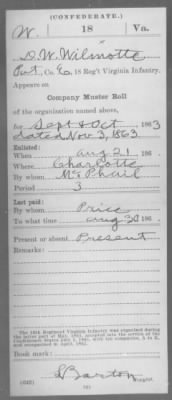 (CONFEDERATE.)
W. 18 Va.
D. W. Wilmotte
Pvt, Co. G, 18 Reg't Virginia Infantry.
Appears on
Company Muster Roll
of the organization named above,
for Sept & Oct 1863
dated Nov 3, 1863
Enlisted:
When Aug 21, 186 .
Where Charlotte
By whom McPhail
Period 3
Last paid:
By whom Price
To what time Aug 30, 186 .
Present or absent Present
Remarks:
The 18th Regiment Virginia Infantry was organized during
Book mark:
(642) S Barton
Copyist.